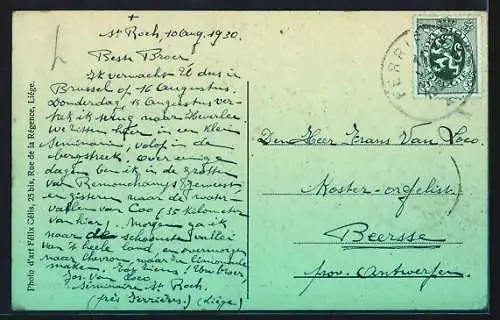 +
St Roch, 10 aug. 1930.
Beste Broer,
Ik verwacht U dus in
Brussel op 16 augustus.
Donderdag, 14 augustus ver-
trek ik terug naar Heverlee.
We zitten hier in een klein
Seminarie, volop in de
bergstreek, over eenige
dagen ben ik in de grotten
van Remouchamps geweest
en gisteren naar de water-
vallen van Coo (35 kilometer
van hier). Morgen ga ik
naar de schoonste vallei
van 't heele land en overmorgen
naar Chevron, waar ze limonade
maken. Tot ziens! Uw broer,
Jos. Van Looco
Seminarie St. Roch.
(près Ferrières) (Liége)
Photo d'art Félix Célis, 25 bis, Rue de la Régence, Liége.
FERRI
Den Heer Frans Van Looco
Koster-orgelist
Beersse
prov. Antwerpen